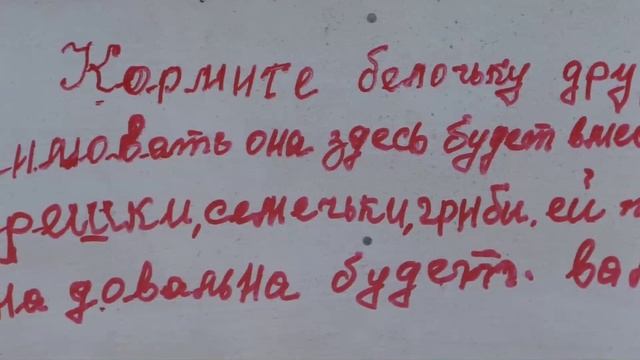 Кормите белочьку дру
нмовать она здесь будет вмес
решки, семечьки, грыби. ей н
на довальна будет. вам